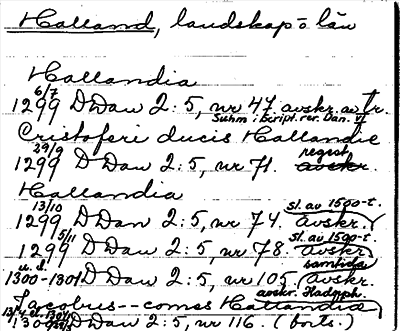 Halland, landskap o län
Hallandia
6/7
1299 DDan 2:5, nr 47. avskr. av tr.
Suhm i Script. rer. Dan. VI
Cristoferi ducis Hallandie
29/9 regest
1299 DDan 2:5, nr 71. avskr.
Hallandia
13/10 sl. av 1500-t.
1299 DDan 2:5, nr 74. Avskr.
5/11 sl. av 1590-t.
1299 DDan 2:5, nr 78. Avskr.
u. d. samtida
1300-1301 DDan 2:5, nr 105. Avskr.
avskr. Hadorph
Jacobus--comes Hallandia
1304 DDan 2:5, nr 116. (forts.)